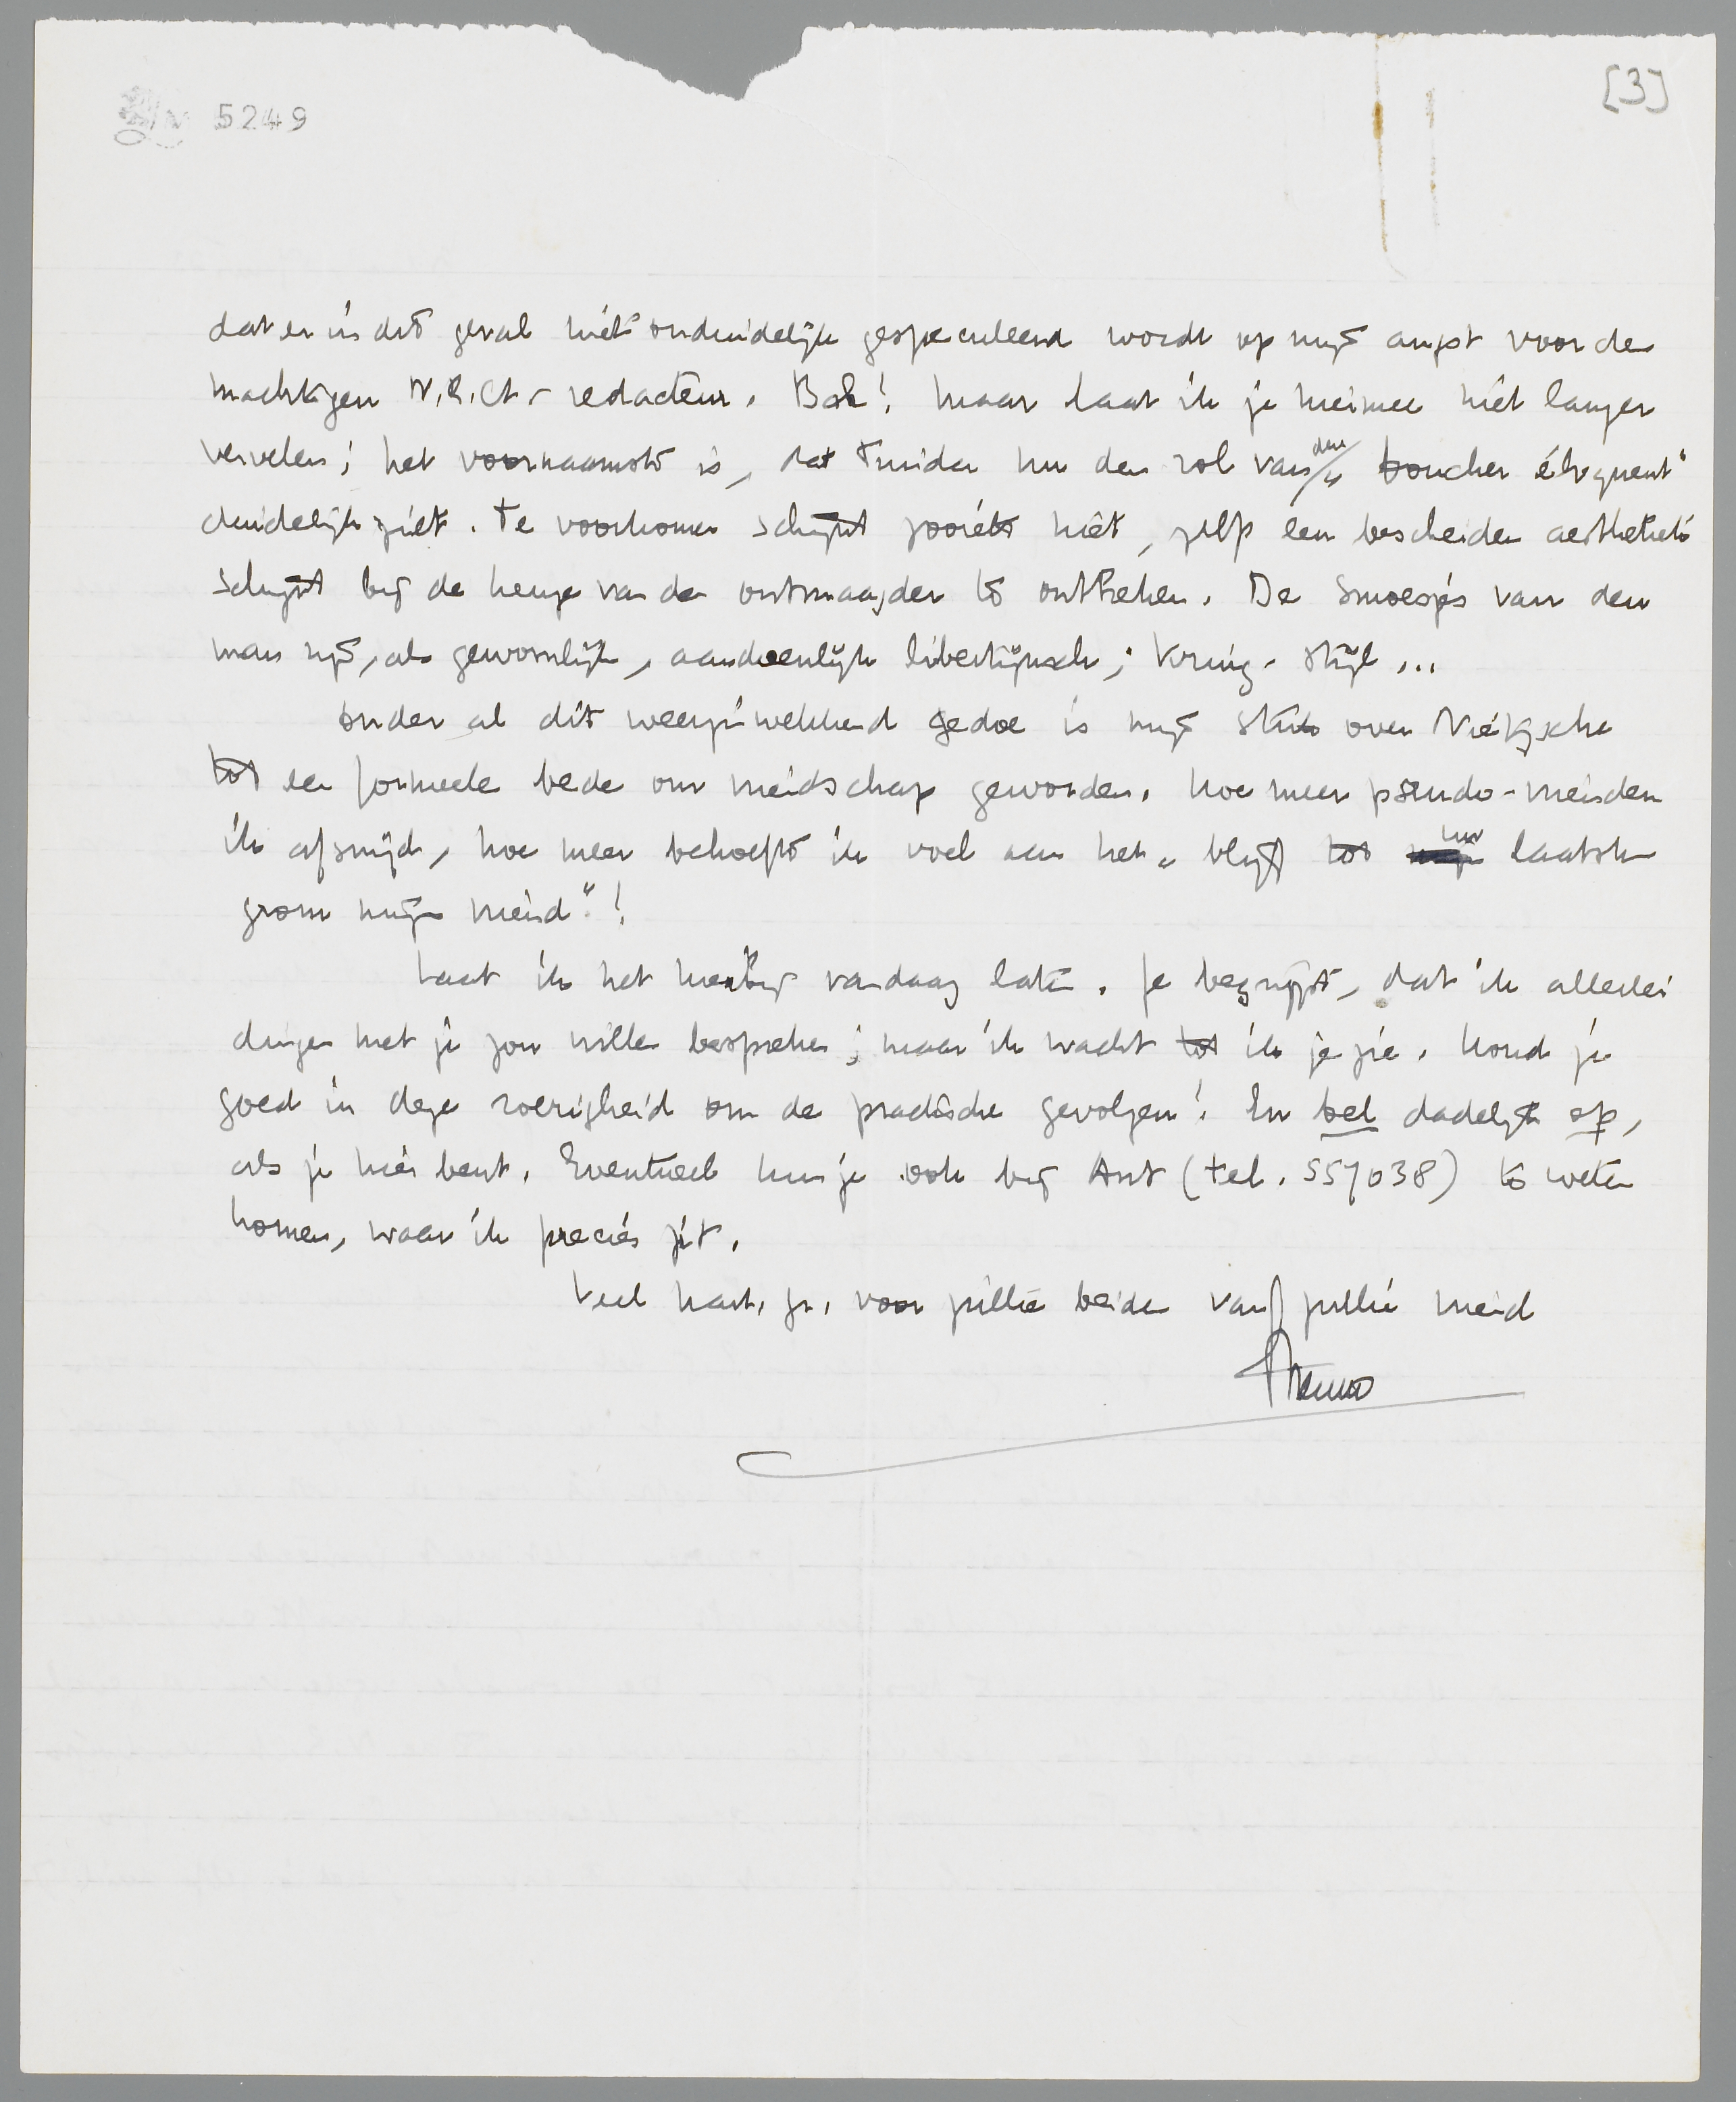 5249
[3]
dat er in dit geval niet onduidelijk gespeculeerd wordt op mijn angst voor den
machtigen N.R.Ct.-redacteur. Bah! Maar laat ik je hiermee niet langer
vervelen; het voornaamste is, dat Truida nu den rol van den „boucher éloquent"
duidelijk ziet. Te voorkomen schijnt zooiets niet, zelfs een bescheiden aesthetiek
schijnt bij de keuze van den ontmaagder te ontbreken. De smoesjes van den
man zijn, als gewoonlijk, aandoenlijk libertijnsch; Kring-stijl...
Onder al dit weerzinwekkend gedoe is mijn stuk over Nietzsche
tot een formeele bede om vriendschap geworden. Hoe meer pseudo-vrienden
ik afsnijd, hoe meer behoefte ik voel aan het „blijf tot uw laatsten
grom mijn vriend"!
Laat ik het hierbij vandaag laten. Je begrijpt, dat ik allerlei
dingen met je zou willen bespreken; maar ik wacht tot ik je zie. Houd je
goed in deze roerigheid om de practische gevolgen! En bel dadelijk op,
als je hier bent. Eventueel kun je ook bij Ant (tel. 557038) te weten
komen, waar ik precies zit.
Veel hart. gr. voor jullie beiden van jullie vriend
Menno